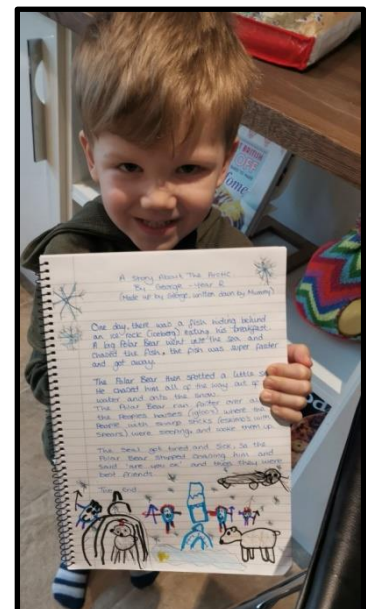 A Story About The Arctic
By George - Year R
(Made up by George, written down by Mummy)
One day, there was a fish hiding behind
an ice-rock (iceberg) eating his breakfast.
A big Polar Bear went into the sea and
chased the fish, the fish was super faster
and got away.
The Polar Bear then spotted a little
He chased him all of the way out of
water and onto the snow.
The Polar Bear ran faster over
the peoples houses (igloos) where the
people with sharp sticks (eskimo's with
spears) were sleeping, and woke them up.
The Seal got tired and sick, so the
Polar Bear stopped chasing him and
said 'are you ok' and then they were
best friends.
The End